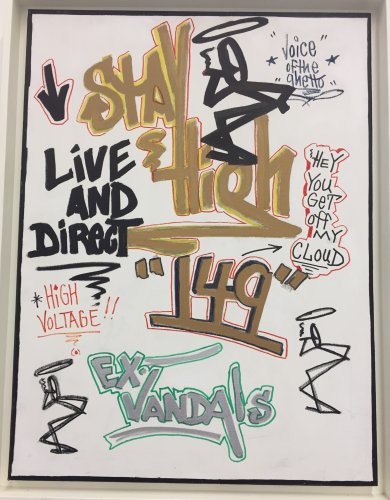 STAY
& High
"149"
"Voice
of the
ghetto"
LiVE
AND
DiRECT
HEY
YOU
GET
off
MY
CLOUD
* HiGH
VOLTAGE!!
EX-
VANDALS